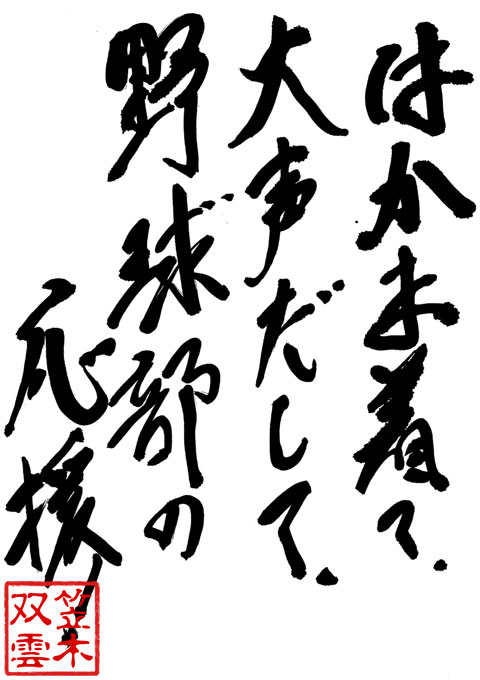 はかま着て、
大声だして、
野球部の
応援
笠木
双雲